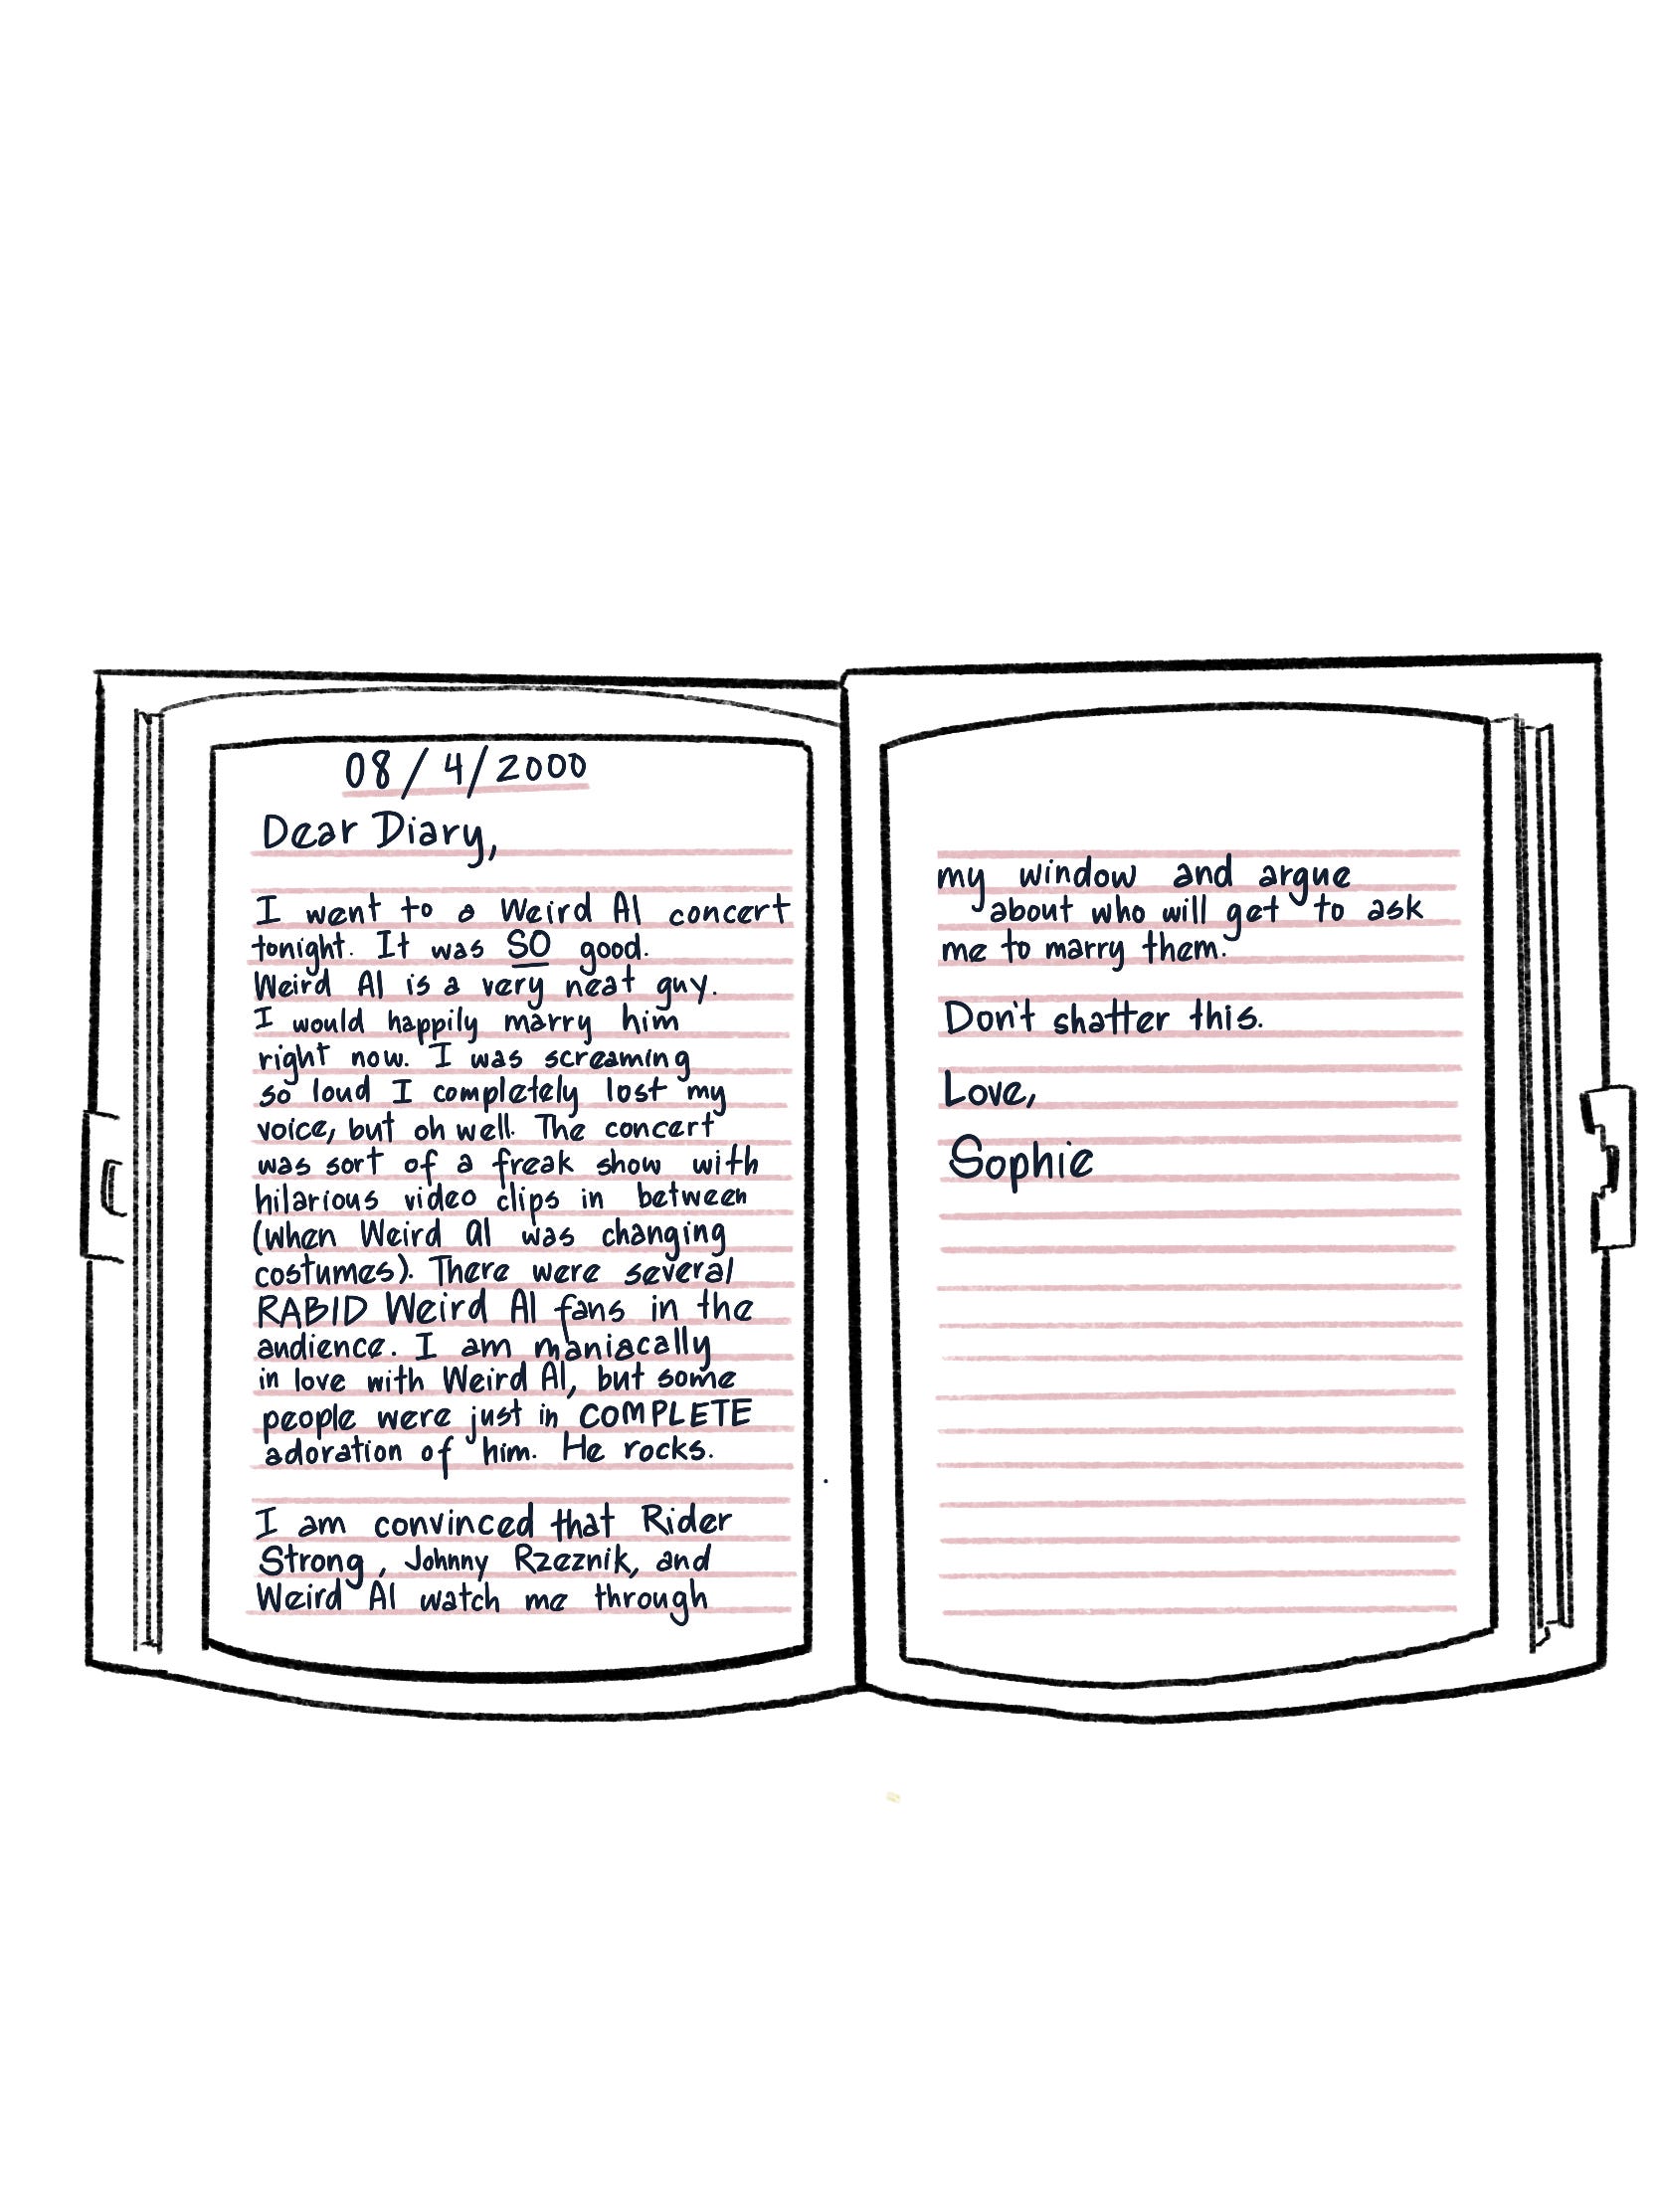 08/4/2000
Dear Diary,
I went to a Weird Al concert
tonight. It was SO good.
Weird Al is a very neat guy.
I would happily marry him
right now. I was screaming
so loud I completely lost my
voice, but oh well. The concert
was sort of a freak show with
hilarious video clips in between
(when Weird Al was changing
costumes). There were several
RABID Weird Al fans in the
audience. I am maniacally
in love with Weird Al, but some
people were just in COMPLETE
adoration of him. He rocks.
I am convinced that Rider
Strong, Johnny Rzeznik, and
Weird Al watch me through
my window and argue
about who will get to ask
me to marry them.
Don't shatter this.
Love,
Sophie